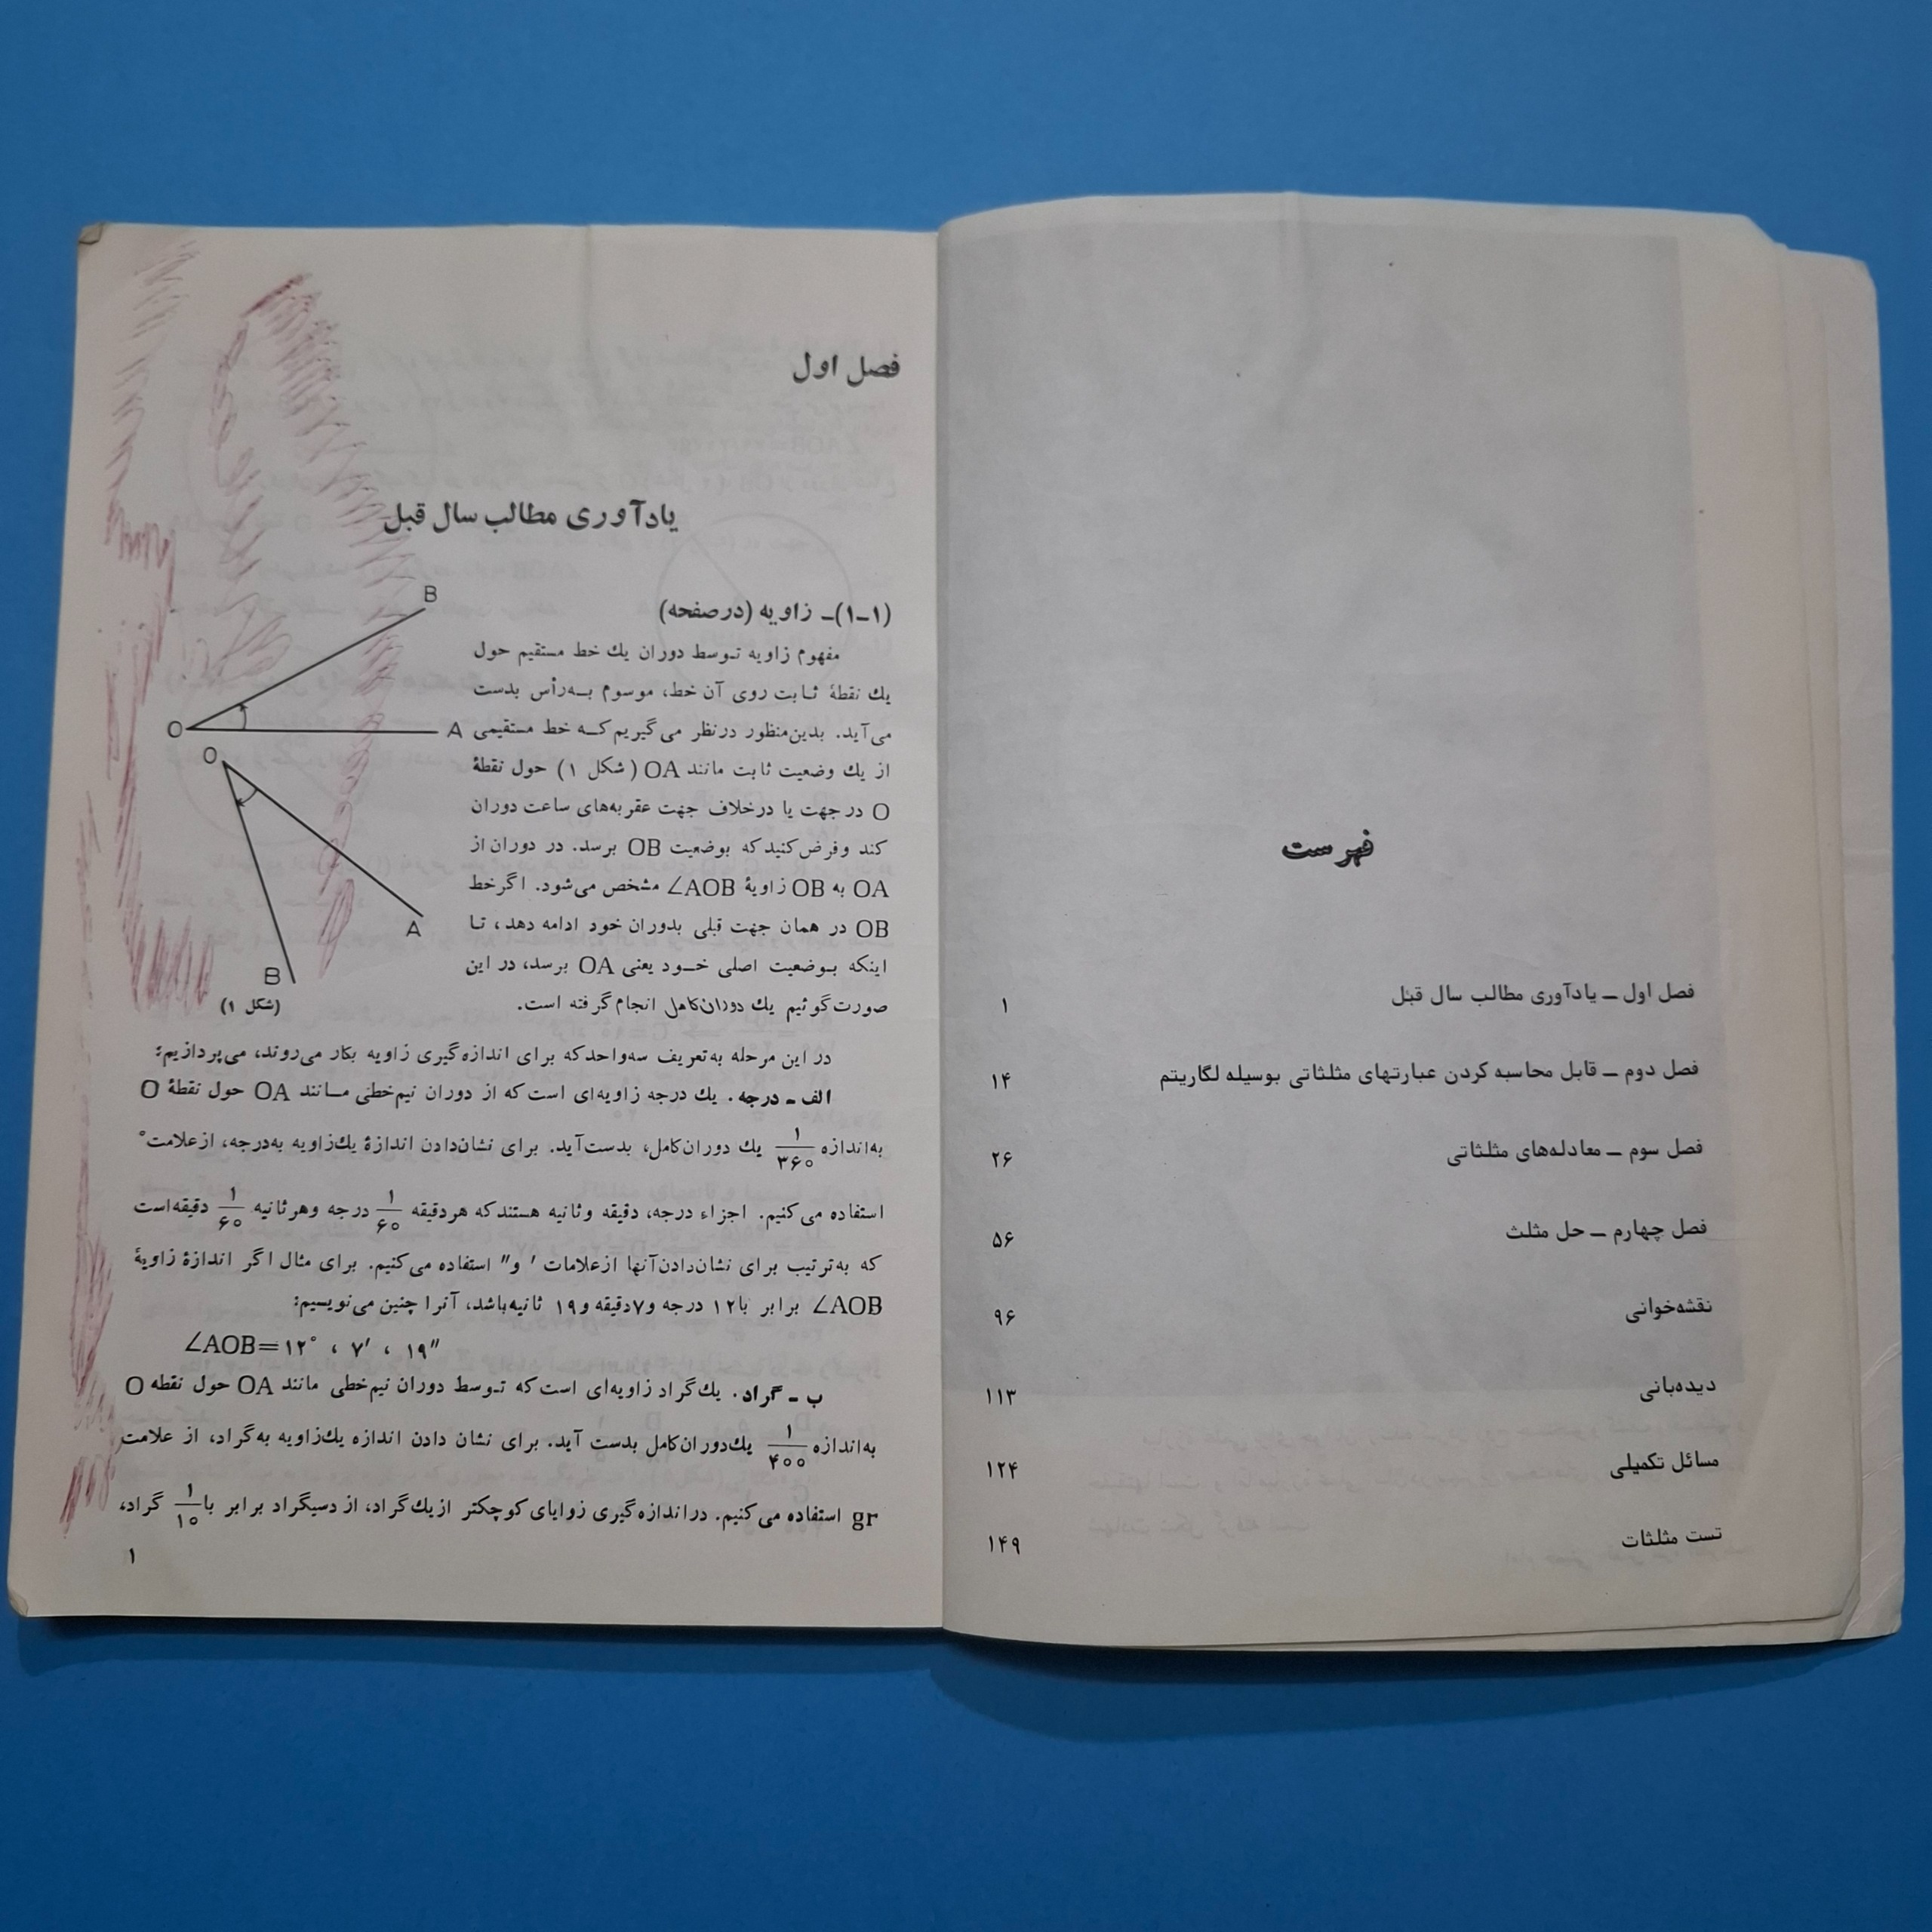 فهرست
فصل اول ــ یادآوری مطالب سال قبل ۱
فصل دوم ــ قابل محاسبه کردن عبارتهای مثلثاتی بوسیله لگاریتم ۱۴
فصل سوم ــ معادله‌های مثلثاتی ۲۶
فصل چهارم ــ حل مثلث ۵۶
نقشه‌خوانی ۹۶
دیده‌بانی ۱۱۳
مسائل تکمیلی ۱۲۴
تست مثلثات ۱۴۹
فصل اول
یادآوری مطالب سال قبل
(۱ـ۱)ـ زاویه (درصفحه)
مفهوم زاویه توسط دوران یك خط مستقیم حول
یك نقطهٔ ثابت روی آن خط، موسوم به‌رأس بدست
می‌آید. بدین‌منظور درنظر می‌گیریم که خط مستقیمی
از یك وضعیت ثابت مانند OA (شکل ۱) حول نقطهٔ
O در جهت یا درخلاف جهت عقربه‌های ساعت دوران
کند وفرض‌کنید که بوضعیت OB برسد. در دوران از
OA به OB زاویهٔ ∠AOB مشخص می‌شود. اگرخط
OB در همان جهت قبلی بدوران خود ادامه دهد، تا
اینکه بوضعیت اصلی خود یعنی OA برسد، در این
صورت‌گوئیم یك دوران‌کامل انجام‌گرفته است.
B
O
A
O
A
B
(شکل ۱)
در این مرحله به‌تعریف سه‌واحدکه برای اندازه‌گیری زاویه بکار می‌روند، می‌پردازیم:
الف ـ درجه. یك درجه زاویه‌ای است‌که از دوران نیم‌خطی مانند OA حول نقطهٔ O
به‌اندازه ۱/۳۶۰ یك دوران‌کامل، بدست‌آید. برای نشان‌دادن اندازهٔ یك‌زاویه به‌درجه، ازعلامت °
استفاده می‌کنیم. اجزاء درجه، دقیقه وثانیه هستندکه هردقیقه ۱/۶۰ درجه وهرثانیه ۱/۶۰ دقیقه‌است
که به‌ترتیب برای نشان‌دادن‌آنها ازعلامات ′ و ″ استفاده می‌کنیم. برای مثال اگر اندازهٔ زاویهٔ
∠AOB برابر با۱۲ درجه و۷دقیقه و۱۹ ثانیه‌باشد، آنرا چنین می‌نویسیم:
∠AOB=۱۲° ، ۷′ ، ۱۹″
ب ـ گراد. یك‌گراد زاویه‌ای است‌که توسط دوران نیم‌خطی مانند OA حول نقطه O
به‌اندازه ۱/۴۰۰ یك‌دوران‌کامل بدست آید. برای نشان دادن اندازه یك‌زاویه به‌گراد، از علامت
gr استفاده می‌کنیم. دراندازه‌گیری زوایای کوچکتر ازیك‌گراد، از دسیگراد برابر با ۱/۱۰ گراد،
۱